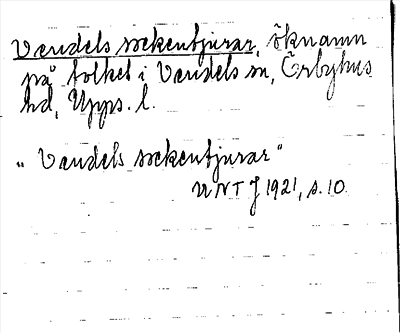 Vendels sockentjurar, öknamn
på folket i Vendels sn, Örbyhus
hd, Upps. l.
"Vendels sockentjurar"
UNT J 1921, s. 10